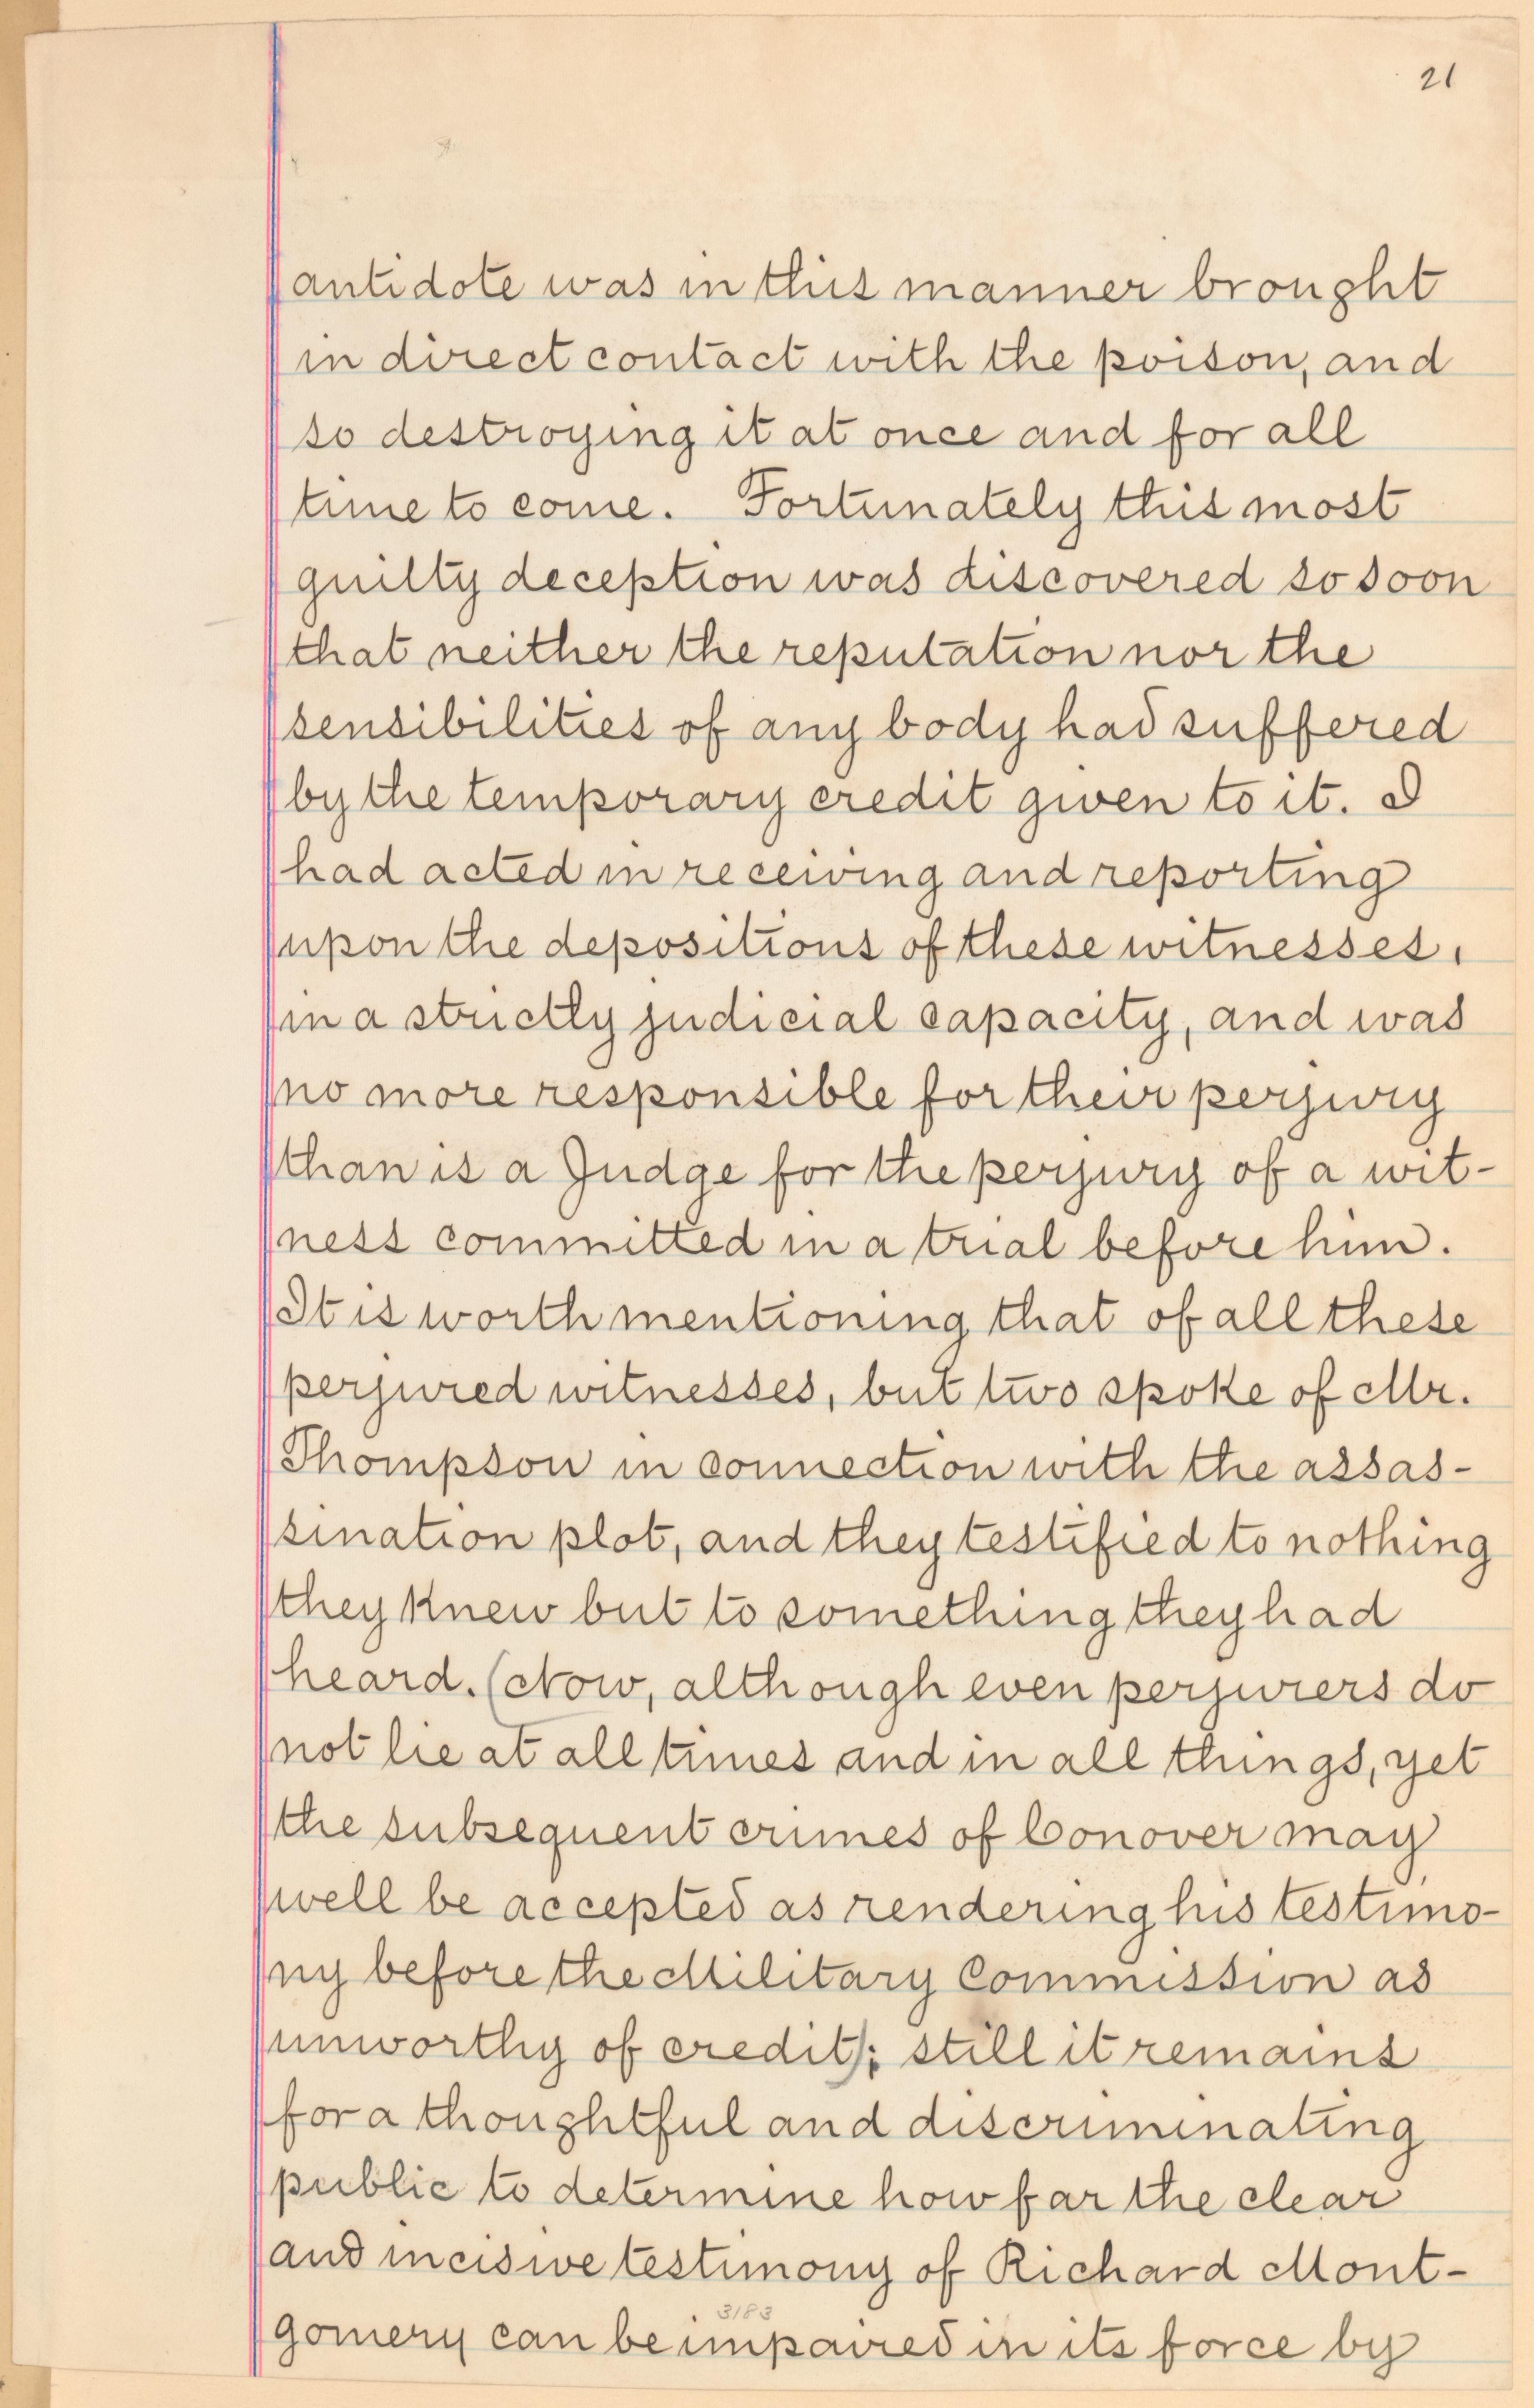 21
antidote was in this manner brought
in direct contact with the poison, and
so destroying it at once and for all
time to come. Fortunately this most
guilty deception was discovered so soon
that neither the reputation nor the
sensibilities of any body had suffered
by the temporary credit given to it. I
had acted in receiving and reporting
upon the depositions of these witnesses,
in a strictly judicial capacity, and was
no more responsible for their perjury
than is a Judge for the perjury of a wit-
ness committed in a trial before him.
It is worth mentioning that of all these
perjured witnesses, but two spoke of Mr.
Thompson in connection with the assas-
sination plot, and they testified to nothing
they knew but to something they had
heard. (Now, although even perjurers do
not lie at all times and in all things, yet
the subsequent crimes of Conover may
well be accepted as rendering his testimo-
ny before the Military Commission as
unworthy of credit); still it remains
for a thoughtful and discriminating
public to determine how far the clear
and incisive testimony of Richard Mont-
3183
gomery can be impaired in its force by